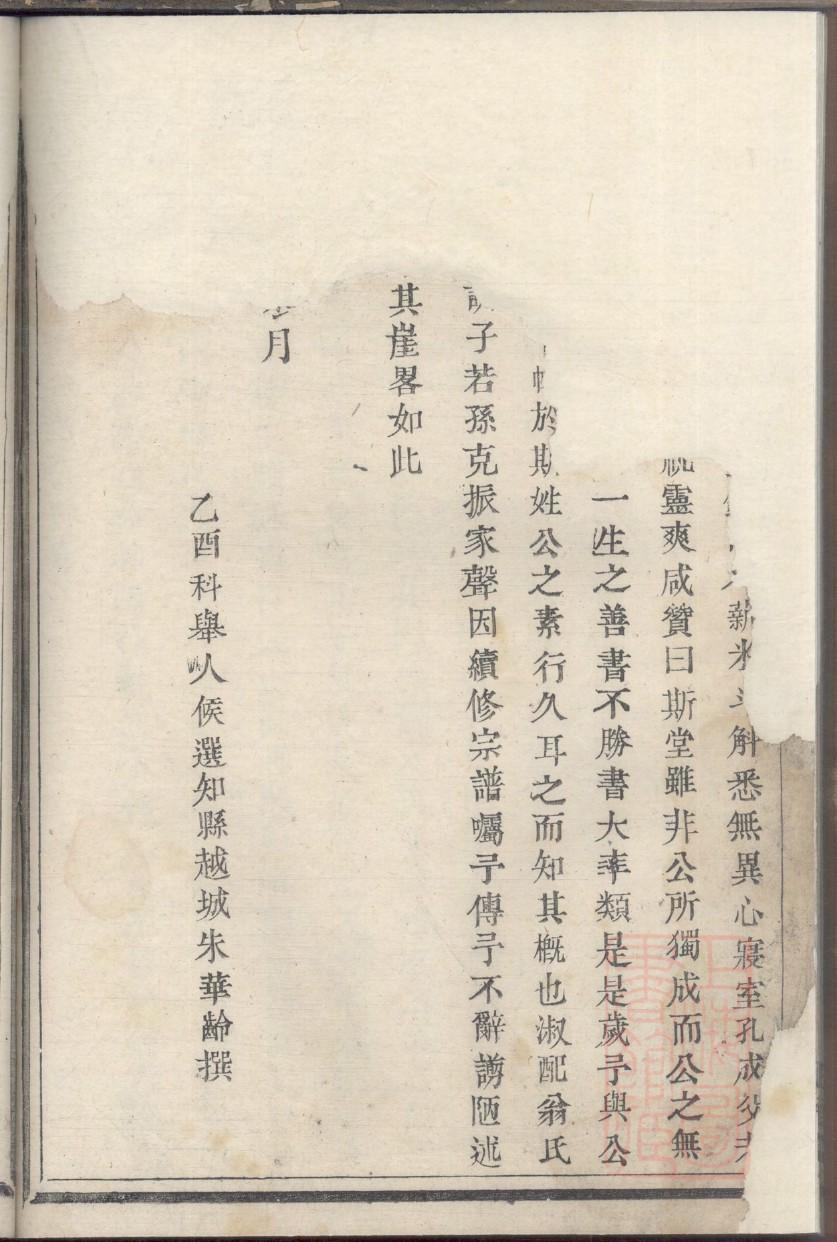 薪米斗斛悉無異心寢室孔成
靈爽咸贊曰斯堂雖非公所獨成而公之無
一生之善書不勝書大率類是是歲予與公
於斯姓公之素行久耳之而知其概也淑配翁氏
子若孫克振家聲因續修宗譜囑予傳予不辭謭陋述
其崖畧如此
月
乙酉科舉人候選知縣越城朱華齡撰